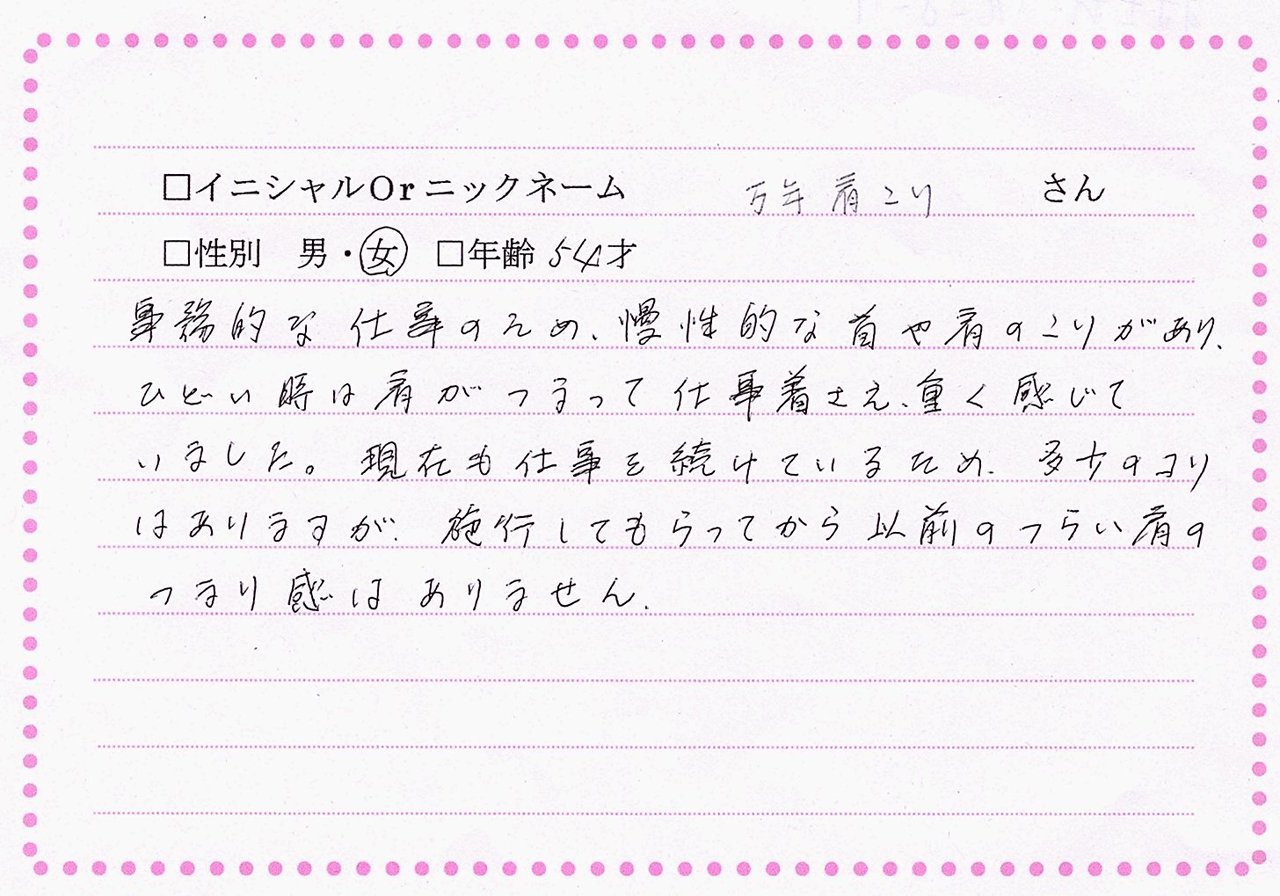 □イニシャルOrニックネーム 万年肩こり さん
□性別 男・女 □年齢 54才
事務的な仕事のため、慢性的な首や肩のこりがあり、
ひどい時は肩がつまって仕事着さえ、重く感じて
いました。現在も仕事を続けているため、多少のコリ
はありますが、施行してもらってから以前のつらい肩の
つまり感はありません。